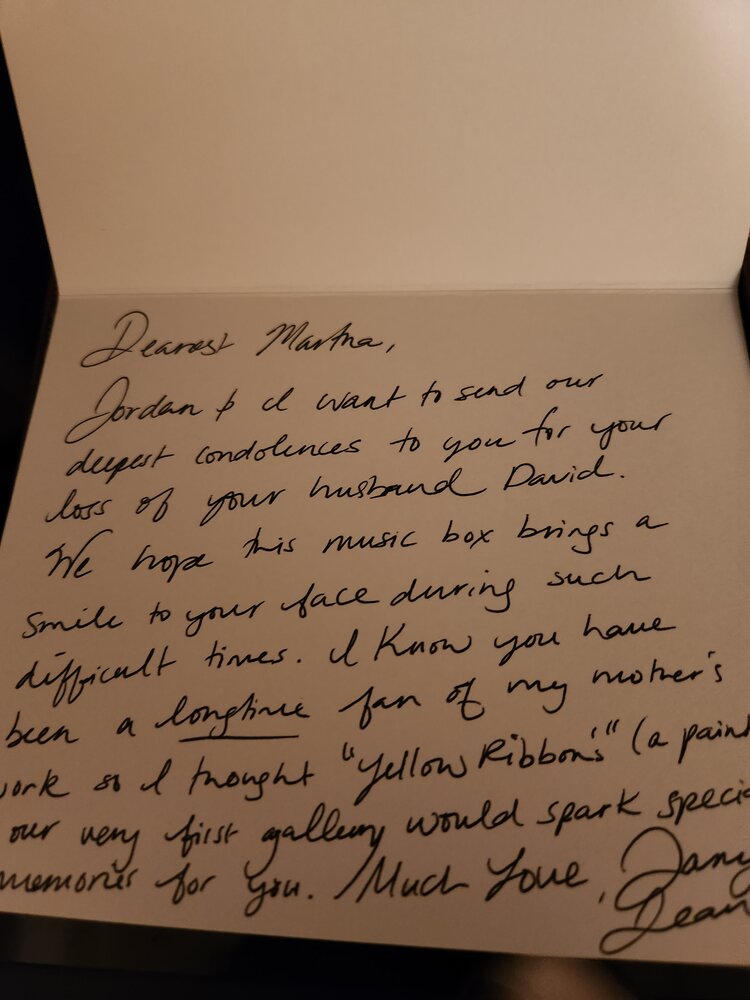 Dearest Martha,
Jordan & I want to send our
deepest condolences to you for your
loss of your husband David.
We hope this music box brings a
smile to your face during such
difficult times. I know you have
been a longtime fan of my mother's
work so I thought "Yellow Ribbons" (a paint
our very first gallery would spark specia
memories for you. Much Love,
Dean